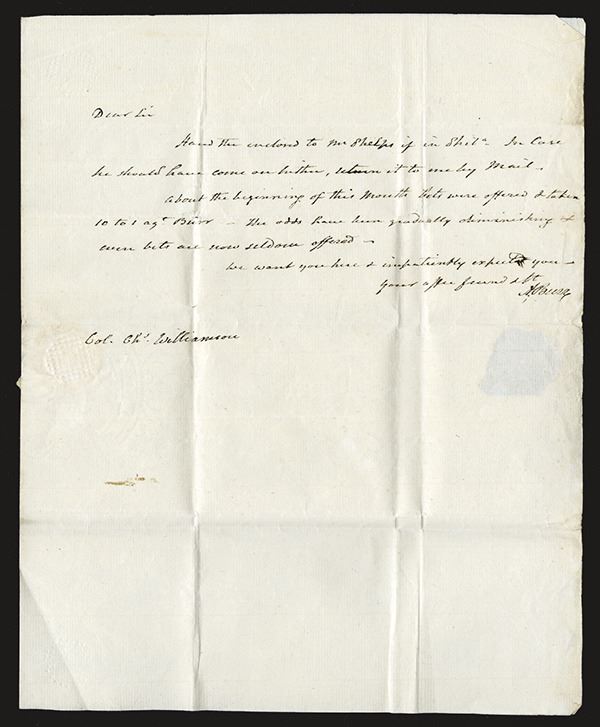 Dear Sir
Hand the enclosed to Mr Phelps if in Phila. In Case
he should have come on hither, return it to me by Mail -
About the beginning of this Month bets were offered & taken
10 to 1 agt. Burr - The odds have been gradually diminishing &
even bets are now seldom offered -
We want you here & impatiently expect you -
your affe friend & St
A. Burr
Col. Chs. Williamson